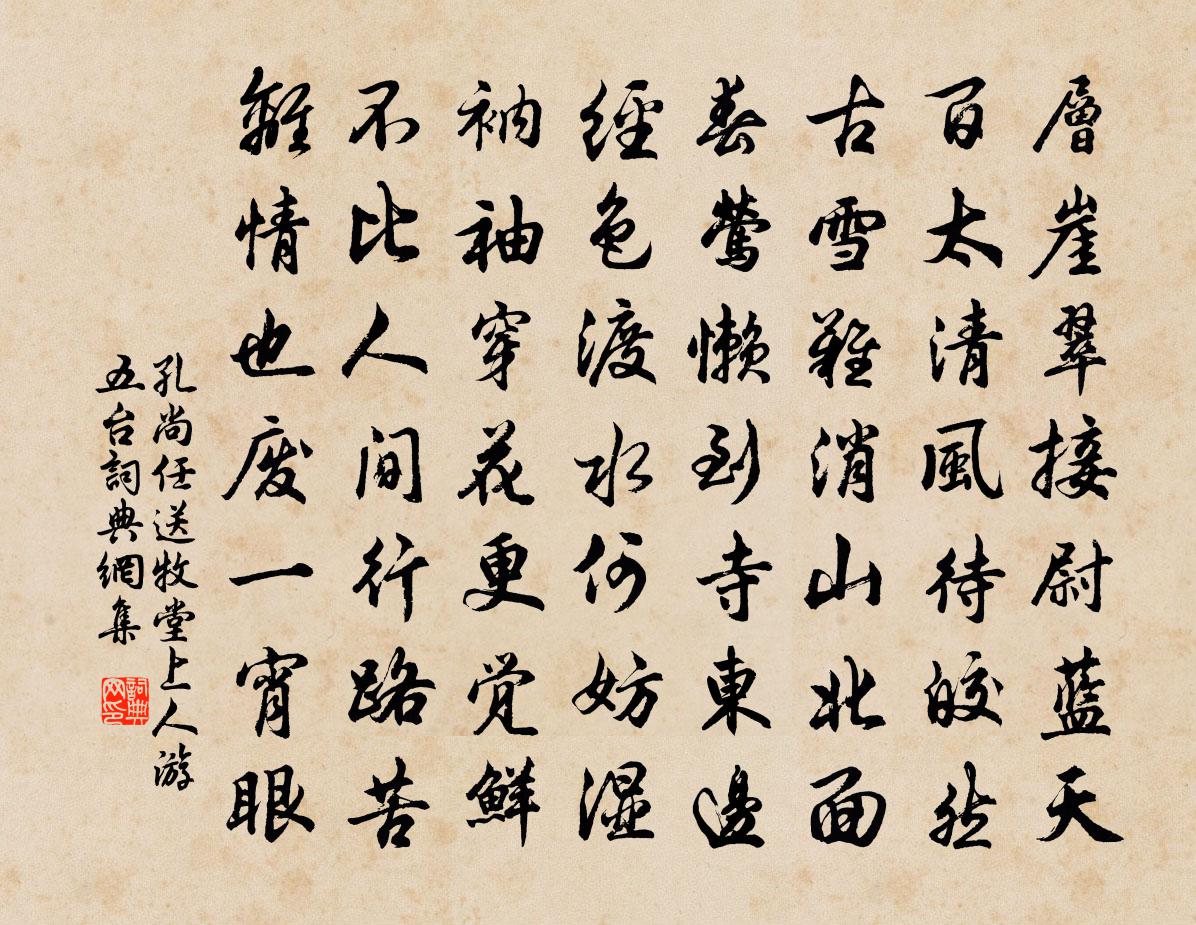 層崖翠接尉藍天
百太清風待皎然
古雪難消山北面
春鶯懶到寺東邊
經色渡水何妨濕
衲袖穿花更覺鮮
不比人間行路苦
離情也廢一宵眠
孔尚任送牧堂上人游
五台詞典網集
詞典
网印